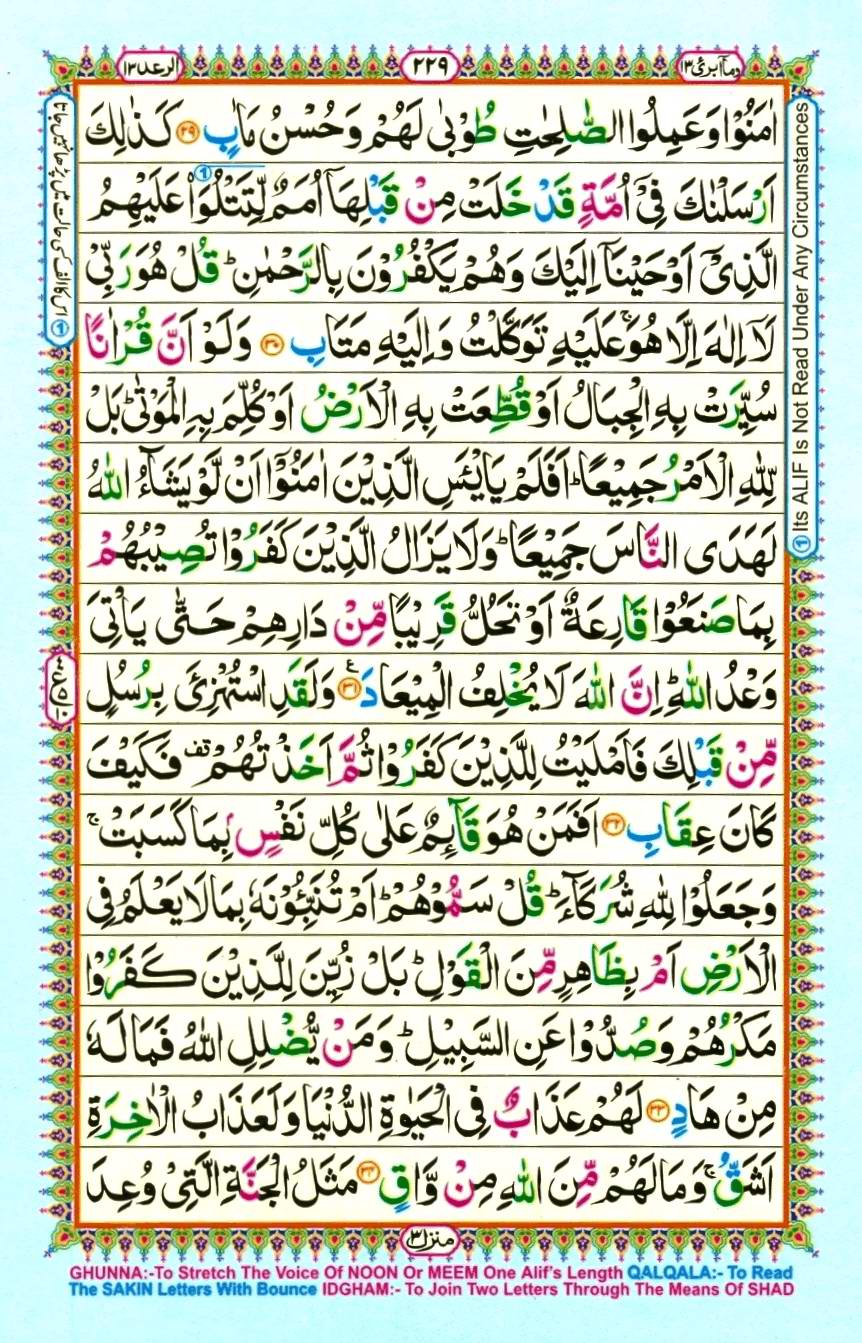 وما ابرئ ١٣
٢٢٩
الرعد ١٣
اٰمَنُوْا وَعَمِلُوا الصّٰلِحٰتِ طُوْبٰى لَهُمْ وَحُسْنُ مَاٰبٍ ﴿٢٩﴾ كَذٰلِكَ
اَرْسَلْنٰكَ فِيْۤ اُمَّةٍ قَدْ خَلَتْ مِنْ قَبْلِهَاۤ اُمَمٌ لِّتَتْلُوَا۟ ① عَلَيْهِمُ
الَّذِيْۤ اَوْحَيْنَاۤ اِلَيْكَ وَهُمْ يَكْفُرُوْنَ بِالرَّحْمٰنِ ؕ قُلْ هُوَ رَبِّيْ
لَاۤ اِلٰهَ اِلَّا هُوَ ۚ عَلَيْهِ تَوَكَّلْتُ وَاِلَيْهِ مَتَابِ ﴿٣٠﴾ وَلَوْ اَنَّ قُرْاٰنًا
سُيِّرَتْ بِهِ الْجِبَالُ اَوْ قُطِّعَتْ بِهِ الْاَرْضُ اَوْ كُلِّمَ بِهِ الْمَوْتٰى ؕ بَلْ
لِّلّٰهِ الْاَمْرُ جَمِيْعًا ؕ اَفَلَمْ يَايْـَٔسِ الَّذِيْنَ اٰمَنُوْۤا اَنْ لَّوْ يَشَآءُ اللّٰهُ
لَهَدَى النَّاسَ جَمِيْعًا ؕ وَلَا يَزَالُ الَّذِيْنَ كَفَرُوْا تُصِيْبُهُمْ
بِمَا صَنَعُوْا قَارِعَةٌ اَوْ تَحُلُّ قَرِيْبًا مِّنْ دَارِهِمْ حَتّٰى يَاْتِيَ
وَعْدُ اللّٰهِ ؕ اِنَّ اللّٰهَ لَا يُخْلِفُ الْمِيْعَادَ ﴿٣١﴾ ع وَلَقَدِ اسْتُهْزِئَ بِرُسُلٍ
مِّنْ قَبْلِكَ فَاَمْلَيْتُ لِلَّذِيْنَ كَفَرُوْا ثُمَّ اَخَذْتُهُمْ قف فَكَيْفَ
كَانَ عِقَابِ ﴿٣٢﴾ اَفَمَنْ هُوَ قَآئِمٌ عَلٰى كُلِّ نَفْسٍۭ بِمَا كَسَبَتْ ۚ
وَجَعَلُوْا لِلّٰهِ شُرَكَآءَ ؕ قُلْ سَمُّوْهُمْ ؕ اَمْ تُنَبِّـُٔوْنَهٗ بِمَا لَا يَعْلَمُ فِي
الْاَرْضِ اَمْ بِظَاهِرٍ مِّنَ الْقَوْلِ ؕ بَلْ زُيِّنَ لِلَّذِيْنَ كَفَرُوْا
مَكْرُهُمْ وَصُدُّوْا عَنِ السَّبِيْلِ ؕ وَمَنْ يُّضْلِلِ اللّٰهُ فَمَا لَهٗ
مِنْ هَادٍ ﴿٣٣﴾ لَهُمْ عَذَابٌ فِي الْحَيٰوةِ الدُّنْيَا وَلَعَذَابُ الْاٰخِرَةِ
اَشَقُّ ۚ وَمَا لَهُمْ مِّنَ اللّٰهِ مِنْ وَّاقٍ ﴿٣٤﴾ مَثَلُ الْجَنَّةِ الَّتِيْ وُعِدَ
① Its ALIF Is Not Read Under Any Circumstances
① اس کا الف کسی حالت میں پڑھا نہیں جاتا
منزل ٣
GHUNNA:-To Stretch The Voice Of NOON Or MEEM One Alif's Length QALQALA:- To Read
The SAKIN Letters With Bounce IDGHAM:- To Join Two Letters Through The Means Of SHAD